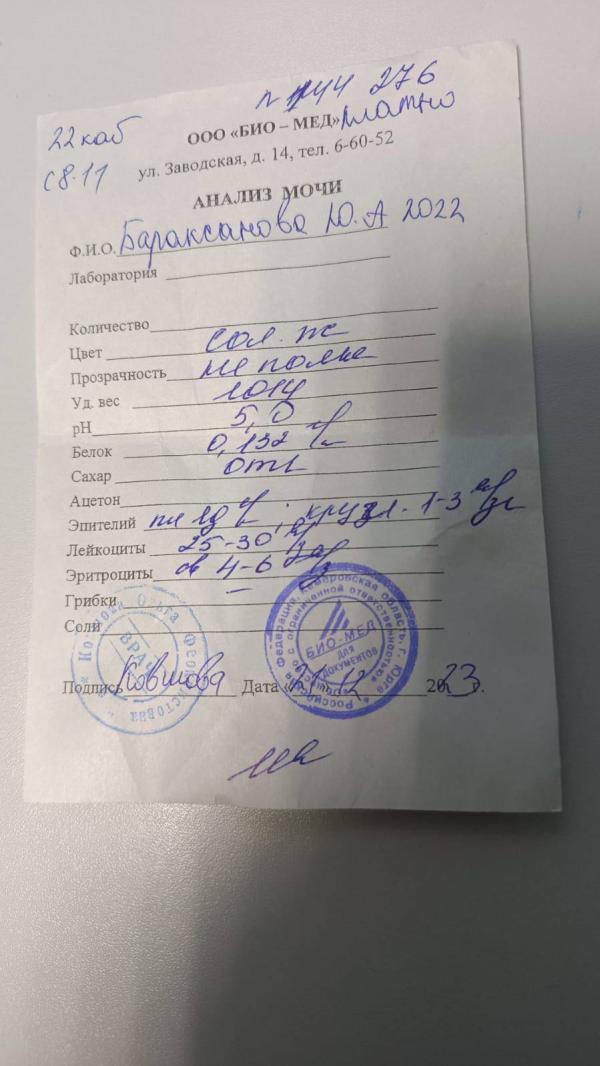 22 каб
276
с 8-11
платно
ООО «БИО – МЕД»
ул. Заводская, д. 14, тел. 6-60-52
АНАЛИЗ МОЧИ
Ф.И.О. Бараксанова Ю.А 2022
Лаборатория
Количество
Цвет сол. ж
Прозрачность не полная
Уд. вес 1014
pH 5,0
Белок 0,132
Сахар отр
Ацетон
Эпителий пл ед 1-3
Лейкоциты 25-30
Эритроциты св 4-6
Грибки –
Соли
Подпись Ковшова Дата « 12 2023 г.
ВРАЧ
Российская Федерация, Кемеровская область, г. Юрга
с ограниченной ответственностью
БИО-МЕД
ДЛЯ
ДОКУМЕНТОВ